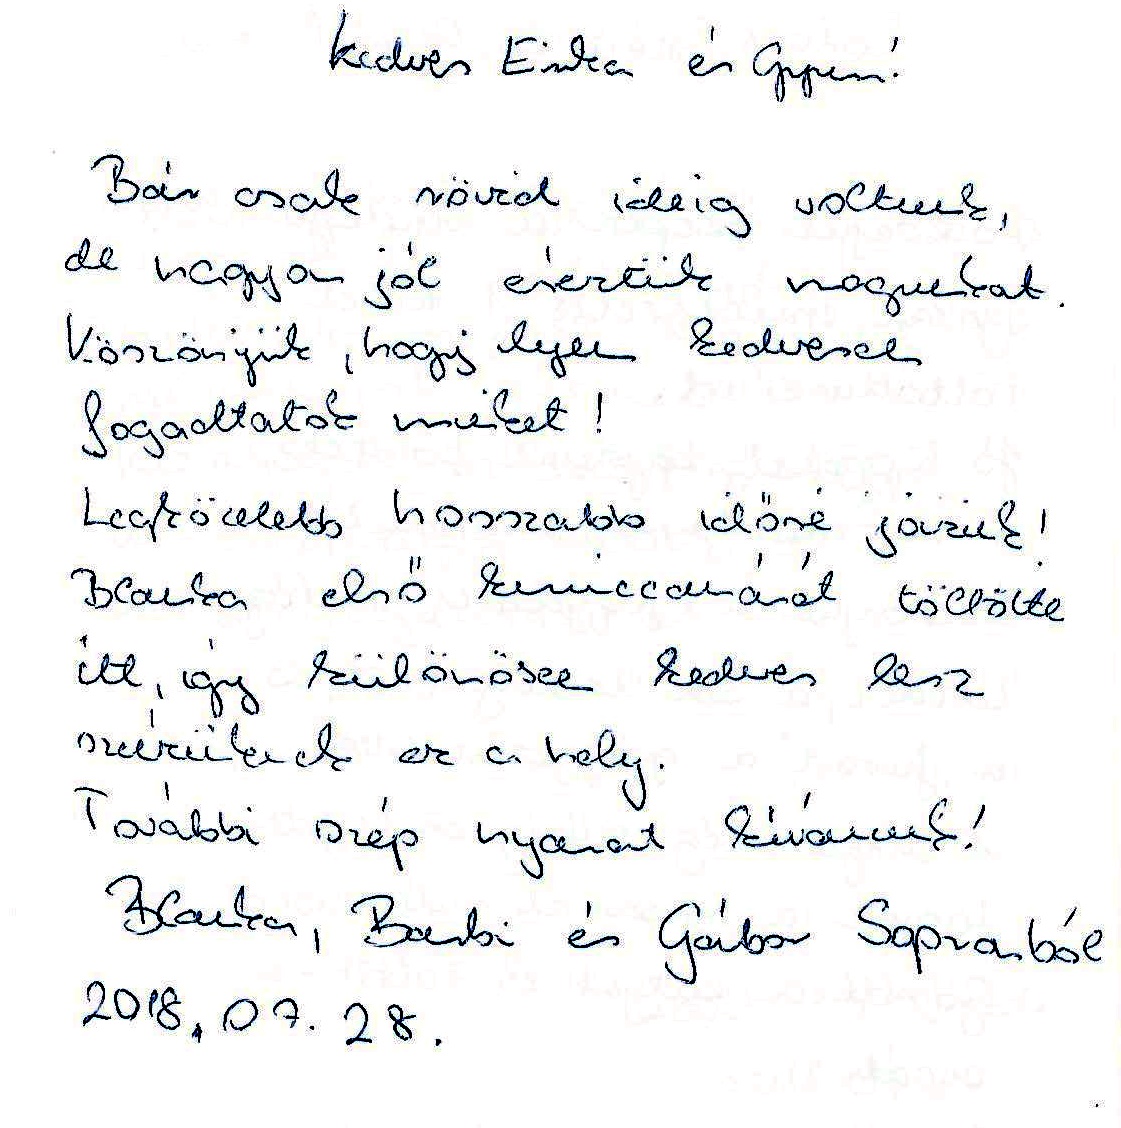 Kedves Erika és!
Bár csak rövid ideig voltunk,
de nagyon jól éreztük magunkat.
Köszönjük, hogy ilyen kedvesen
fogadtatok minket!
Legközelebb hosszabb időre jövünk!
Blanka első töltötte
itt, így különösen kedves lesz
szívünknek ez a hely.
További szép nyarat kívánunk!
Blanka, Barbi és Gábor Sopronból
2018. 07. 28.